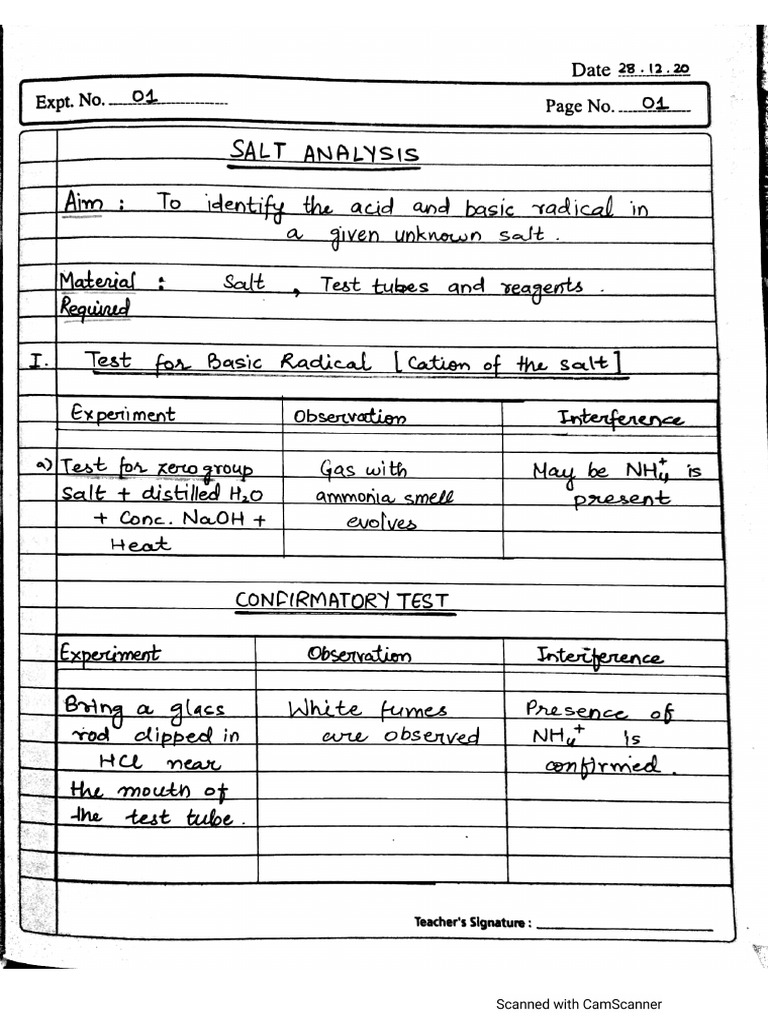 Date 28.12.20
Expt. No. 01
Page No. 01
SALT ANALYSIS
Aim : To identify the acid and basic radical in
a given unknown salt.
Material : Salt , Test tubes and reagents .
Required
I. Test for Basic Radical [Cation of the salt]
Experiment Observation Interference
a) Test for zero group Gas with May be NH₄⁺ is
Salt + distilled H₂O ammonia smell present
+ Conc. NaOH + evolves
Heat
CONFIRMATORY TEST
Experiment Observation Interference
Bring a glass White fumes Presence of
rod dipped in are observed NH₄⁺ is
HCl near confirmed.
the mouth of
the test tube.
Teacher's Signature :
Scanned with CamScanner